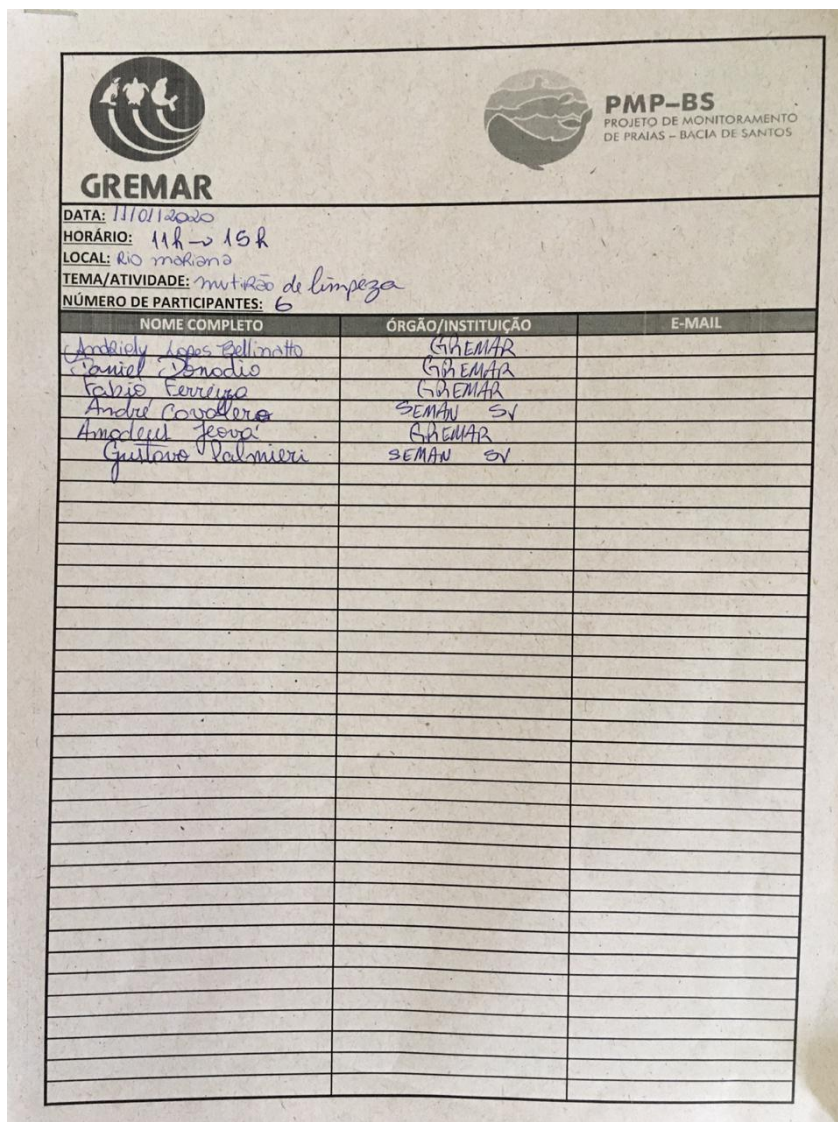 GREMAR
PMP–BS
PROJETO DE MONITORAMENTO
DE PRAIAS – BACIA DE SANTOS
DATA: 11/01/2020
HORÁRIO: 11h → 15h
LOCAL: Rio mariana
TEMA/ATIVIDADE: mutirão de limpeza
NÚMERO DE PARTICIPANTES: 6
NOME COMPLETO ÓRGÃO/INSTITUIÇÃO E-MAIL
Andriely Lopes Bellinatto GREMAR
Daniel Donadio GREMAR
Fabio Ferreira GREMAR
André Cavallero SEMAN SV
Amadeul Jeová GREMAR
Gustavo Palmieri SEMAN SV